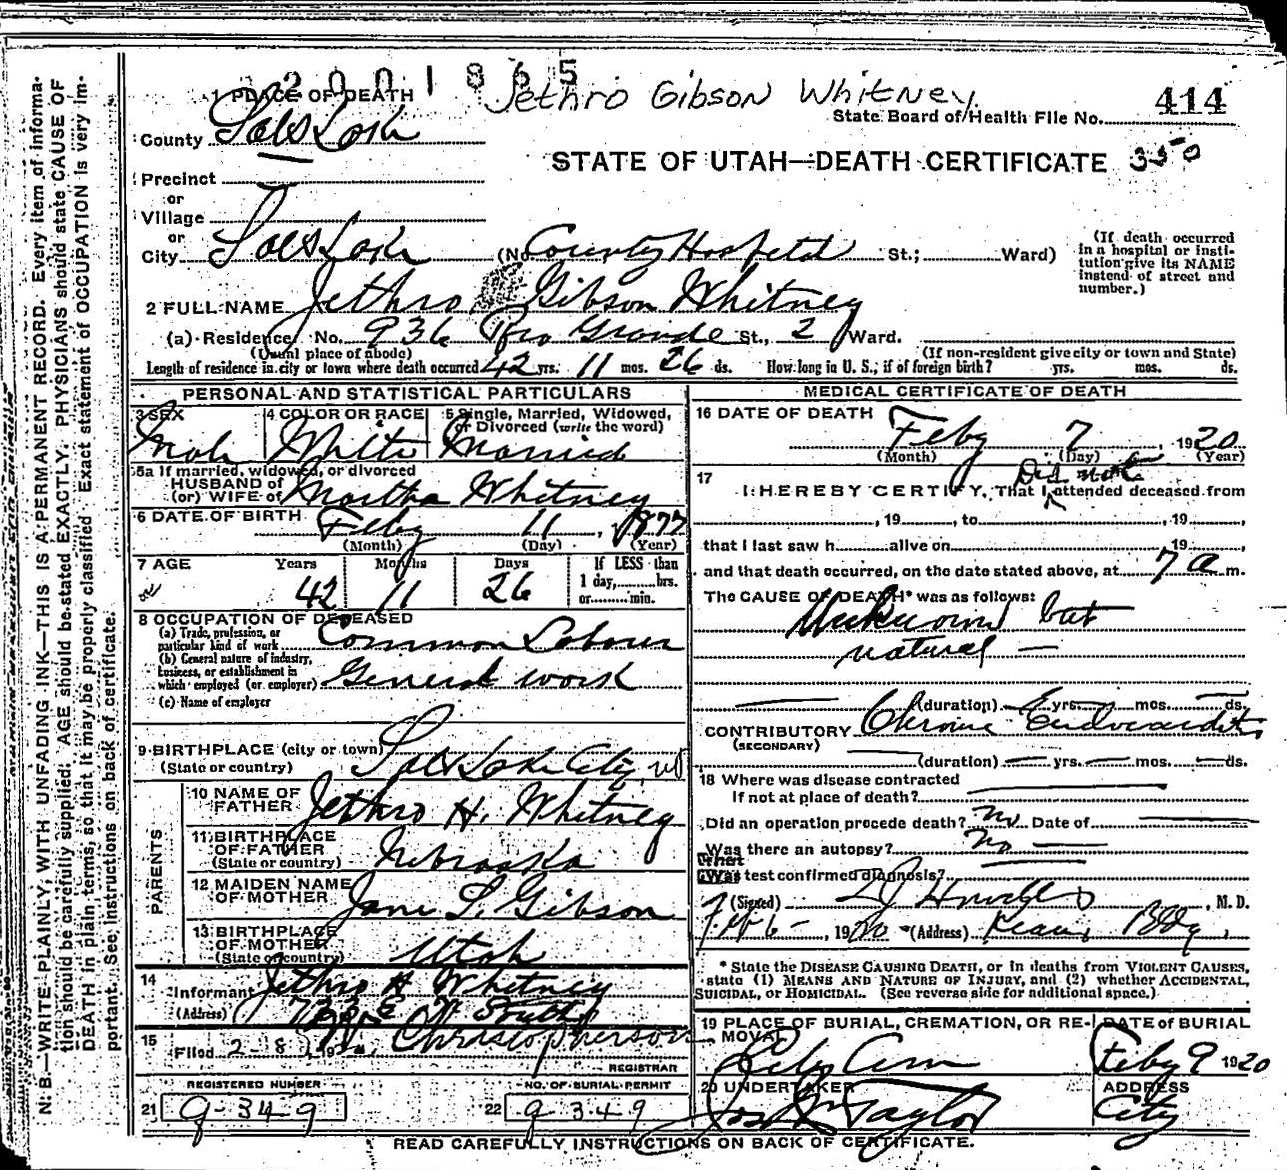 2001865
Jethro Gibson Whitney
1 PLACE OF DEATH
414
State Board of Health File No.
County Salt Lake
STATE OF UTAH—DEATH CERTIFICATE 350
Precinct
or
Village
or
City Salt Lake (No County Hospital St.; Ward)
(If death occurred in a hospital or institution give its NAME instead of street and number.)
2 FULL NAME Jethro Gibson Whitney
(a) Residence No. 936 Rio Grande St., 2 Ward.
(Usual place of abode) (If non-resident give city or town and State)
Length of residence in city or town where death occurred 42 yrs. 11 mos. 26 ds. How long in U. S., if of foreign birth? yrs. mos. ds.
PERSONAL AND STATISTICAL PARTICULARS
3 SEX 4 COLOR OR RACE 5 Single, Married, Widowed, or Divorced (write the word)
Male White Married
5a If married, widowed, or divorced
HUSBAND of
(or) WIFE of Martha Whitney
6 DATE OF BIRTH Feby 11, 1877
(Month) (Day) (Year)
7 AGE Years Months Days If LESS than
1 day, hrs.
or min.
42 11 26
8 OCCUPATION OF DECEASED
(a) Trade, profession, or
particular kind of work Common Laborer
(b) General nature of industry,
business, or establishment in
which employed (or employer) General work
(c) Name of employer
9 BIRTHPLACE (city or town) Salt Lake City, Ut
(State or country)
PARENTS
10 NAME OF
FATHER Jethro H. Whitney
11 BIRTHPLACE
OF FATHER
(State or country) Nebraska
12 MAIDEN NAME
OF MOTHER Jane S. Gibson
13 BIRTHPLACE
OF MOTHER
(State or country) Utah
14
Informant Jethro H Whitney
(Address) South
15
Filed 2-8, 1920, Christopherson
REGISTRAR
REGISTERED NUMBER NO. OF BURIAL PERMIT
21 g-349 22 g-349
MEDICAL CERTIFICATE OF DEATH
16 DATE OF DEATH
Feby 7, 1920
(Month) (Day) (Year)
17 Did not
I HEREBY CERTIFY, That I attended deceased from
, 19 , to , 19 ,
that I last saw h alive on 19 ,
and that death occurred, on the date stated above, at 7 a m.
The CAUSE OF DEATH* was as follows:
Unknown but
natural —
(duration) yrs. mos. ds.
CONTRIBUTORY Chronic Endocarditis
(SECONDARY)
(duration) yrs. mos. ds.
18 Where was disease contracted
If not at place of death?
Did an operation precede death? no Date of
Was there an autopsy? no
What test confirmed diagnosis?
(Signed) , M. D.
, 1920 (Address) Kearns Bldg,
* State the DISEASE CAUSING DEATH, or in deaths from VIOLENT CAUSES,
state (1) MEANS AND NATURE OF INJURY, and (2) whether ACCIDENTAL,
SUICIDAL, or HOMICIDAL. (See reverse side for additional space.)
19 PLACE OF BURIAL, CREMATION, OR RE-
MOVAL
City Cem
DATE of BURIAL
Feby 9 1920
20 UNDERTAKER
Jos Wm Taylor
ADDRESS
City
READ CAREFULLY INSTRUCTIONS ON BACK OF CERTIFICATE.
N. B.—WRITE PLAINLY WITH UNFADING INK—THIS IS A PERMANENT RECORD. Every item of informa-
tion should be carefully supplied; AGE should be stated EXACTLY. PHYSICIANS should state CAUSE OF
DEATH in plain terms, so that it may be properly classified. Exact statement of OCCUPATION is very im-
portant. See instructions on back of certificate.